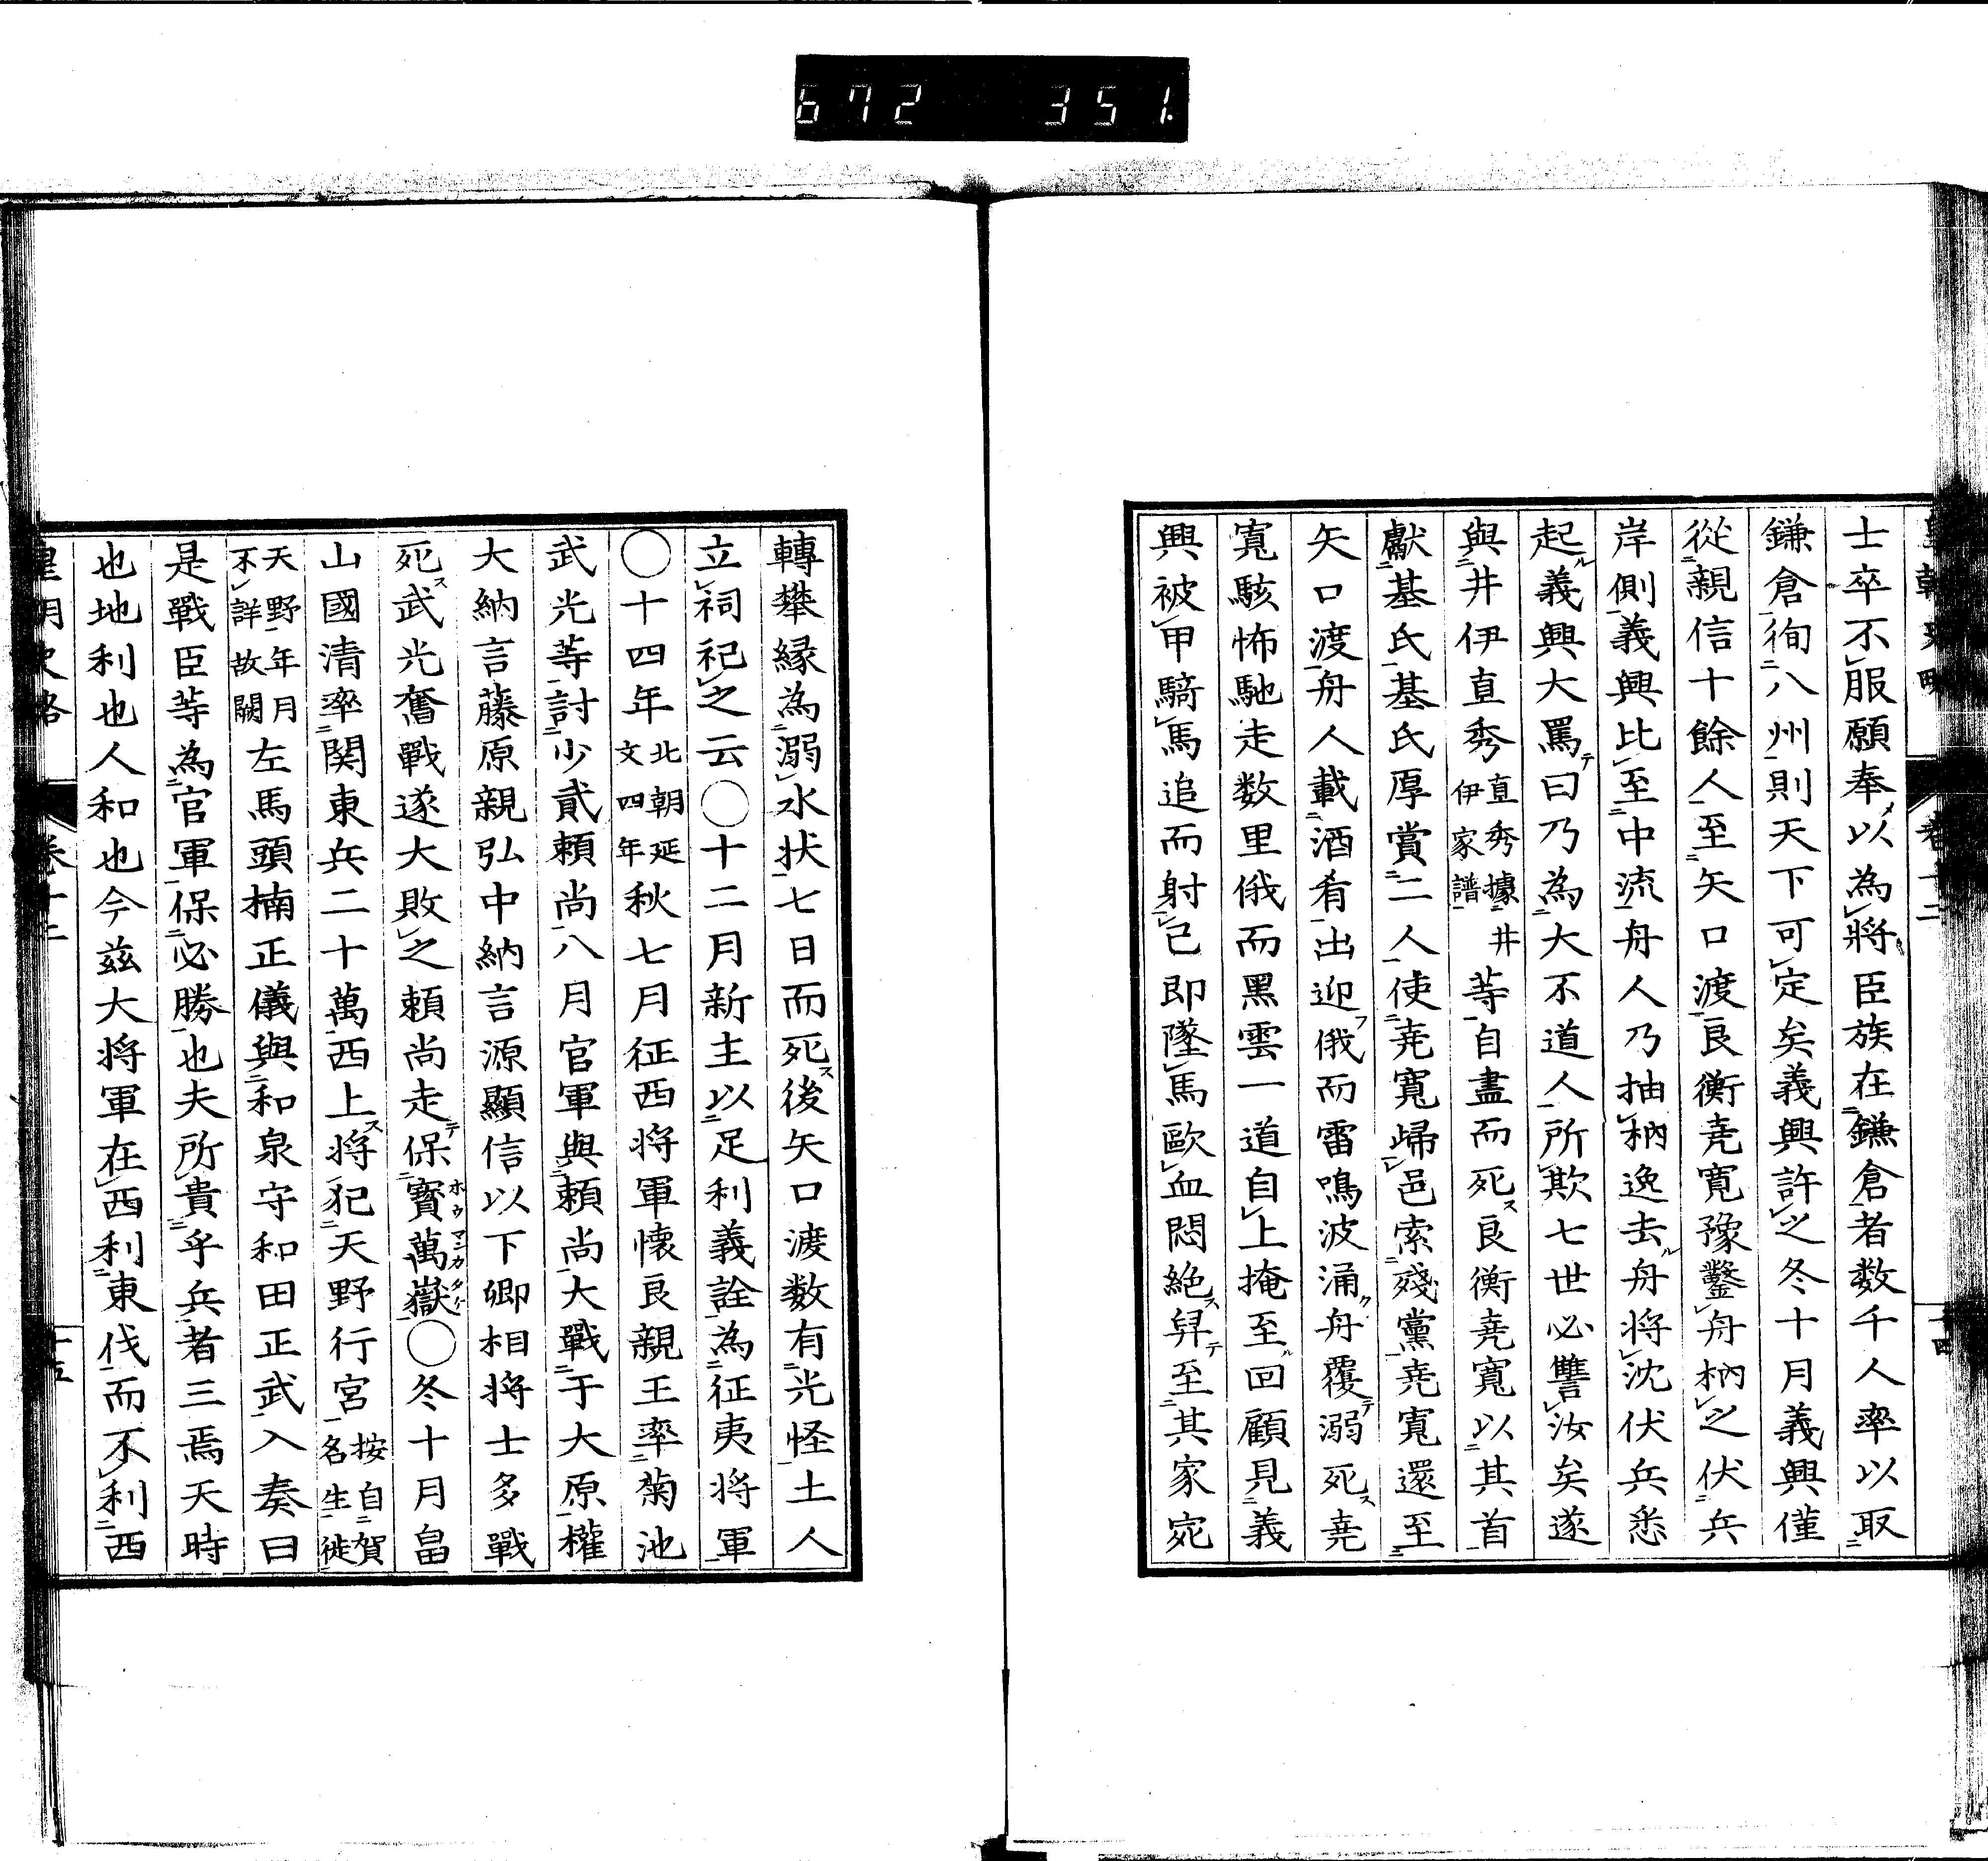 672 351.
士卒不服願奉以為將臣族在鎌倉者数千人率以取
鎌倉徇八州則天下可定矣義興許之冬十月義興僅
從親信十餘人至矢口渡良衡尭寛豫鑿舟枘之伏兵
岸側義興比至中流舟人乃抽枘逸去舟将沈伏兵悉
起義興大罵曰乃為大不道人所欺七世必讐汝矣遂
與井伊直秀直秀據井伊家譜等自盡而死良衡尭寛以其首
獻基氏基氏厚賞二人使尭寛歸邑索殘黨尭寛還至
矢口渡舟人載酒肴出迎俄而雷鳴波涌舟覆溺死尭
寛駭怖馳走数里俄而黒雲一道自上掩至回顧見義
興被甲騎馬追而射已即墜馬歐血悶絶舁至其家宛
轉攀縁為溺水状七日而死後矢口渡数有光怪土人
立祠祀之云〇十二月新主以足利義詮為征夷将軍
〇十四年北朝延文四年秋七月征西将軍懐良親王率菊池
武光等討少貳頼尚八月官軍與頼尚大戰于大原權
大納言藤原親弘中納言源顯信以下卿相将士多戰
死武光奮戰遂大敗之頼尚走保寳萬嶽〇冬十月畠
山國清率関東兵二十萬西上将犯天野行宮按自賀名生徙
天野年月不詳故闕左馬頭楠正儀與和泉守和田正武入奏曰
是戰臣等為官軍保必勝也夫所貴乎兵者三焉天時
也地利也人和也今茲大将軍在西利東伐而不利西